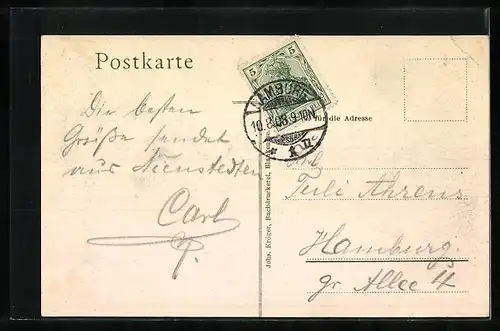 Postkarte
5 5
HAMBURG
10.8.08.9-10N
für die Adresse
Die besten
Grüße sendet
aus Nienstedten
Carl
Johs. Kröger, Buchdruckerei,
Tuli Ahrens
Hamburg.
gr Allee 4